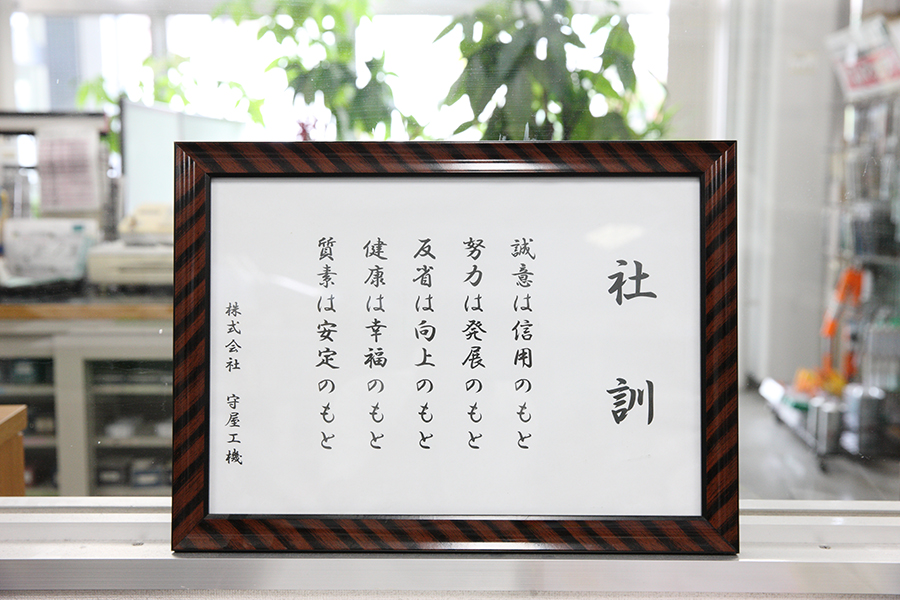 社訓
誠意は信用のもと
努力は発展のもと
反省は向上のもと
健康は幸福のもと
質素は安定のもと
株式会社 守屋工機